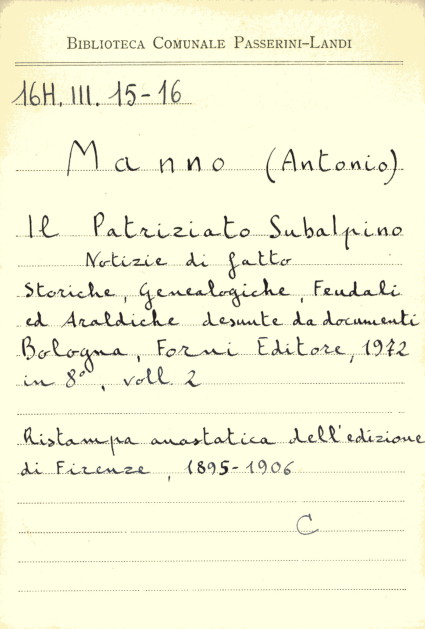 BIBLIOTECA COMUNALE PASSERINI-LANDI
16H. III. 15-16
Manno (Antonio)
Il Patriziato Subalpino
Notizie di fatto
Storiche, Genealogiche, Feudali
ed Araldiche desunte da documenti
Bologna, Forni Editore, 1972
in 8°, voll. 2
Ristampa anastatica dell'edizione
di Firenze, 1895-1906
C